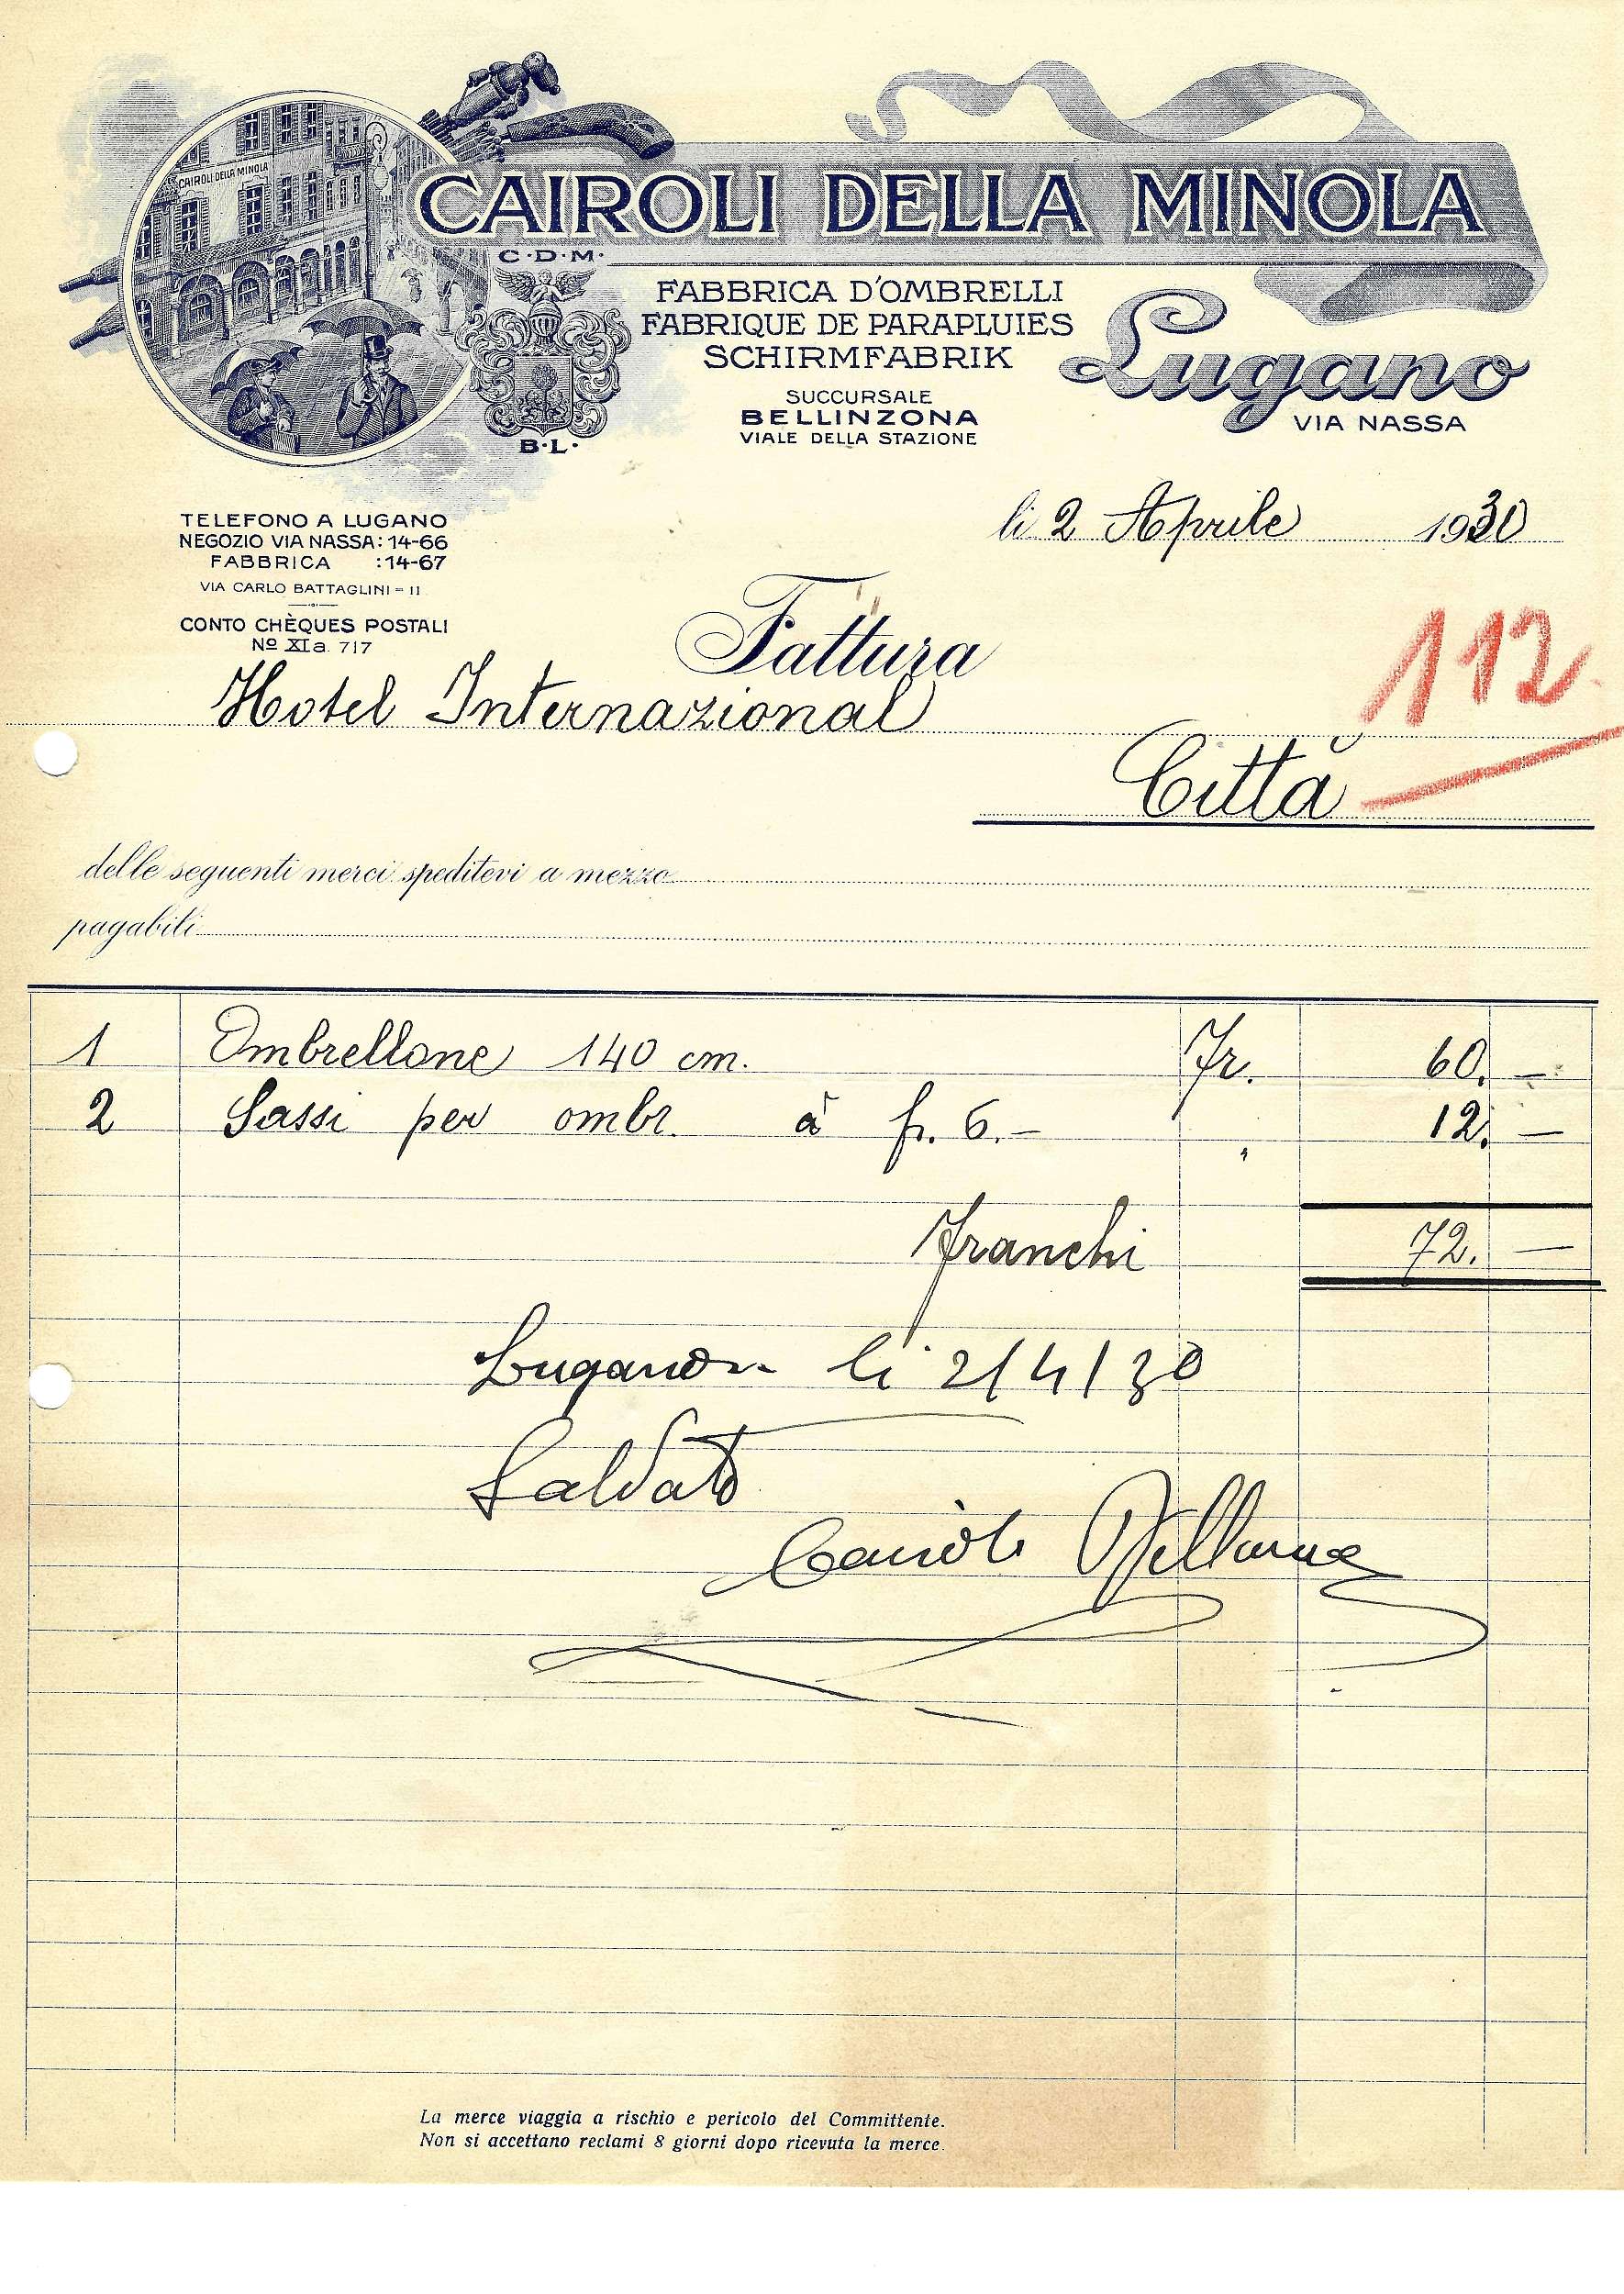 CAIROLI DELLA MINOLA
CAIROLI DELLA MINOLA
C·D·M·
B·L·
FABBRICA D'OMBRELLI
FABRIQUE DE PARAPLUIES
SCHIRMFABRIK
SUCCURSALE
BELLINZONA
VIALE DELLA STAZIONE
Lugano
VIA NASSA
TELEFONO A LUGANO
NEGOZIO VIA NASSA: 14-66
FABBRICA : 14-67
VIA CARLO BATTAGLINI = 11
CONTO CHÈQUES POSTALI
Nº XIa 717
li 2 Aprile 1930
Fattura
112.
Hotel Internazional
Città
delle seguenti merci speditevi a mezzo
pagabili
1 Ombrellone 140 cm. Fr. 60. —
2 Sassi per ombr. à fr. 6.- 12. —
Franchi 72. —
Lugano li 2/4/30
Saldato
Cairoli
La merce viaggia a rischio e pericolo del Committente.
Non si accettano reclami 8 giorni dopo ricevuta la merce.